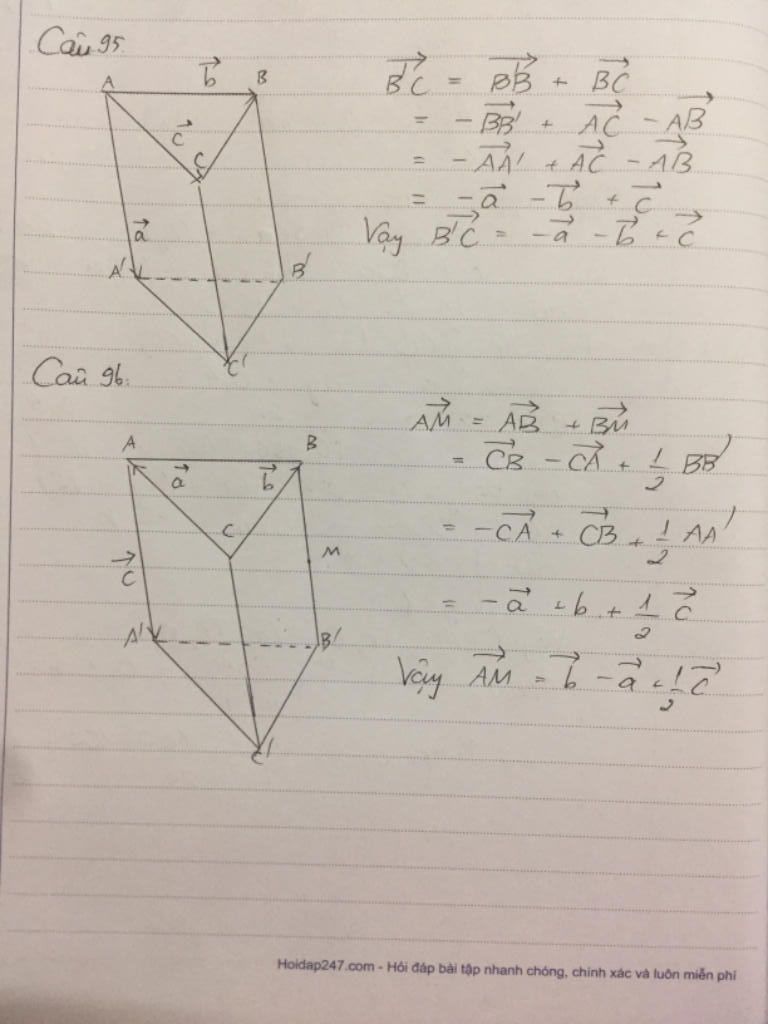 Câu 95.
A
b⃗
B
c⃗
C
a⃗
A'
B'
C'
B'C⃗ = B'B⃗ + BC⃗
= -BB'⃗ + AC⃗ - AB⃗
= -AA'⃗ + AC⃗ - AB⃗
= -a⃗ - b⃗ + c⃗
Vậy B'C⃗ = -a⃗ - b⃗ + c⃗
Câu 96:
A
B
a⃗
b⃗
C
c⃗
M
A'
B'
C'
AM⃗ = AB⃗ + BM⃗
= CB⃗ - CA⃗ + 1/2 BB'
= -CA⃗ + CB⃗ + 1/2 AA'
= -a⃗ + b + 1/2 c⃗
Vậy AM⃗ = b⃗ - a⃗ + 1/2 c⃗
Hoidap247.com - Hỏi đáp bài tập nhanh chóng, chính xác và luôn miễn phí